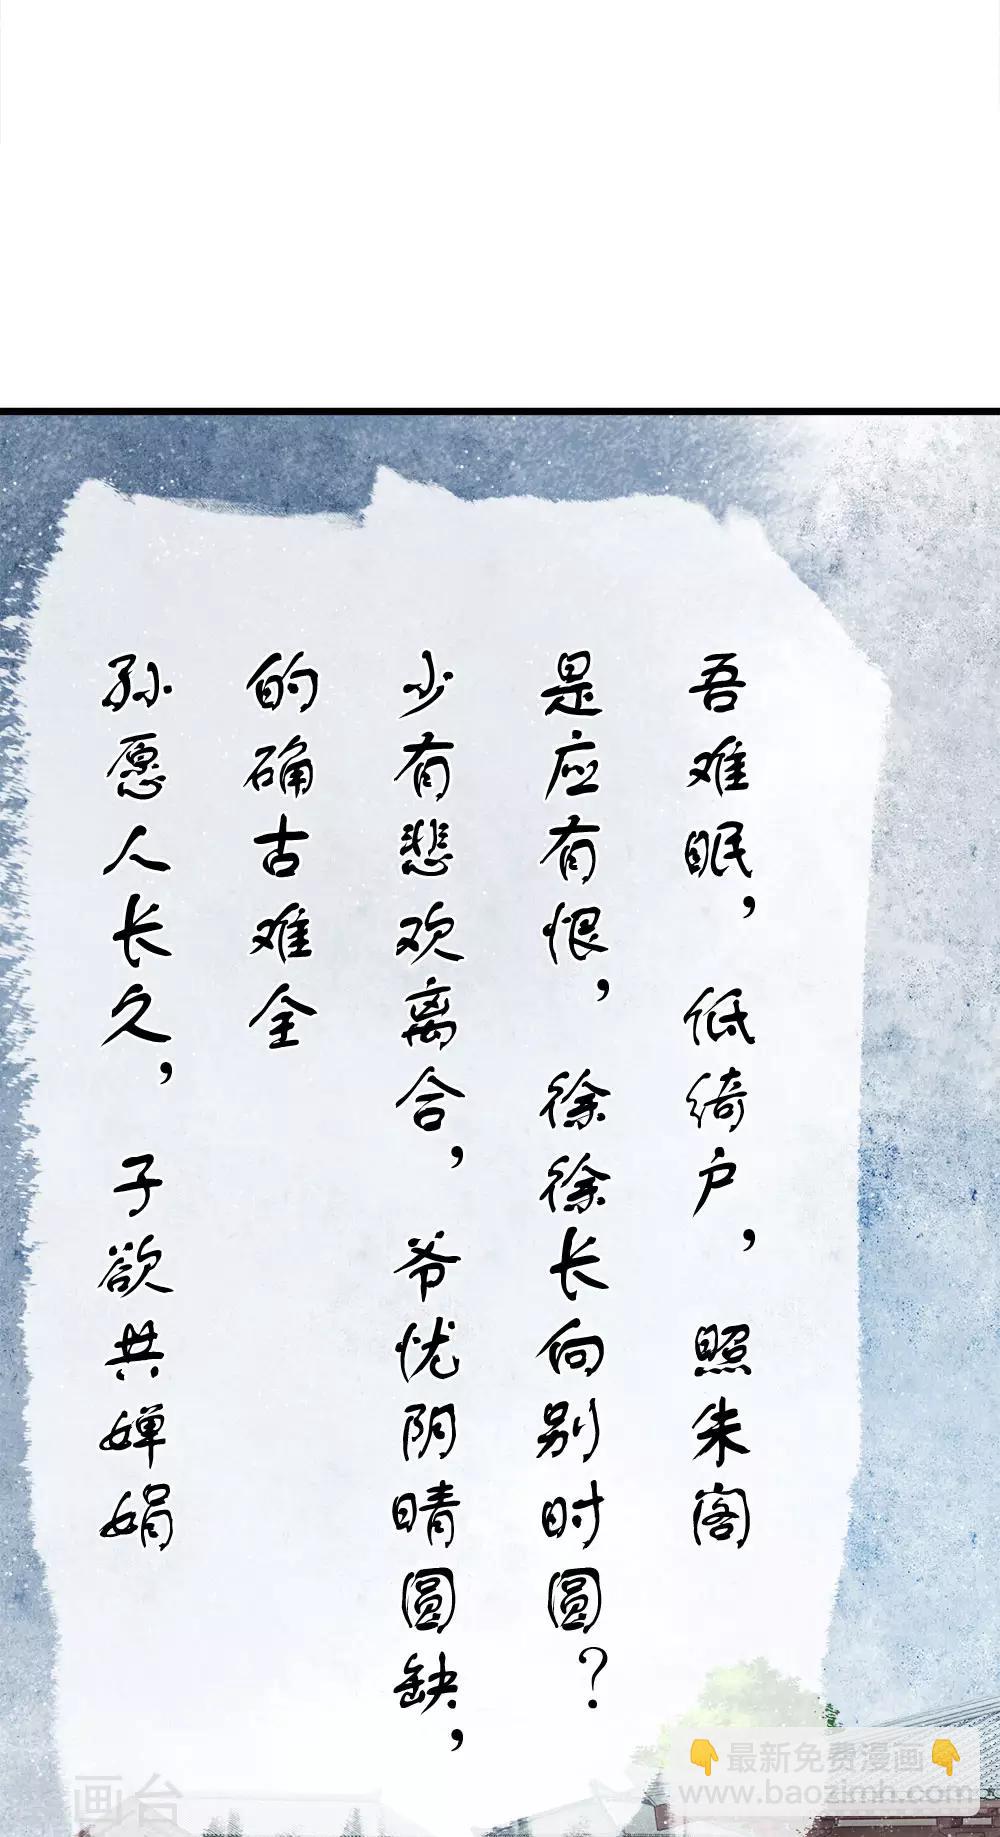 吾难眠，低绮户，照朱阁
是应有恨，徐徐长向别时圆？
少有悲欢离合，爷忧阴晴圆缺，
的确古难全
孙愿人长久，子欲共婵娟
画台
👇最新免费漫画👇
www.baozimh.com